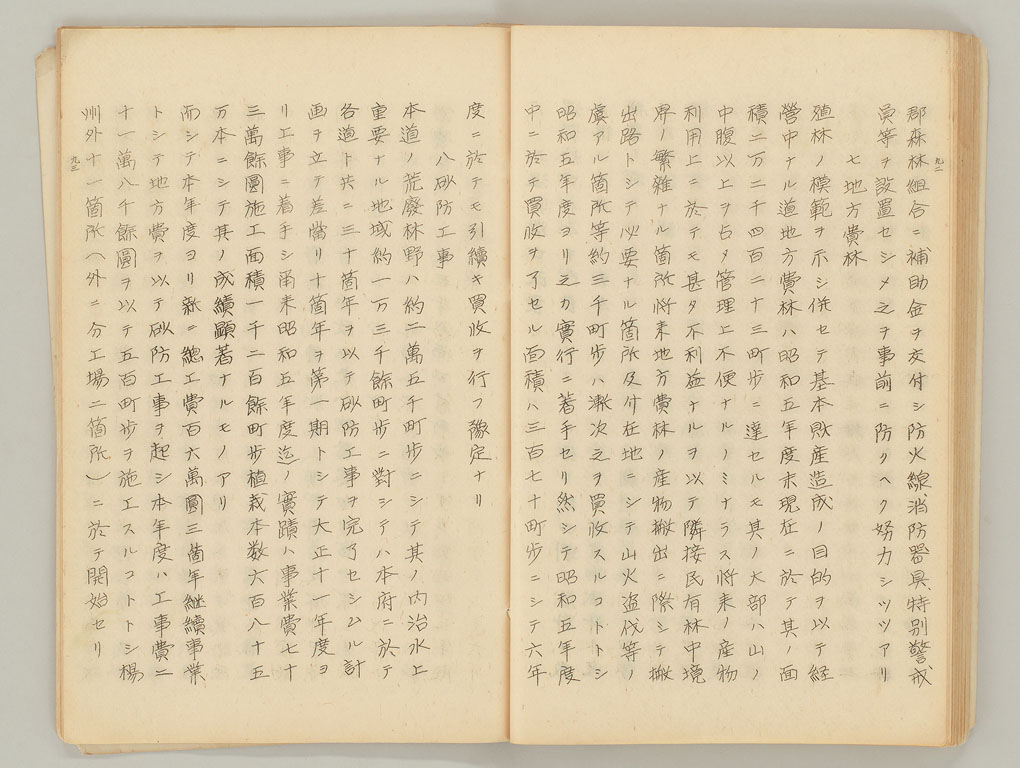 九二
郡森林組合ニ補助金ヲ交付シ防火線消防器具特別警戒
員等ヲ設置セシメ之ヲ事前ニ防クヘク努力シツツアリ
七 地方費林
殖林ノ模範ヲ示シ併セテ基本財産造成ノ目的ヲ以テ経
營中ナル道地方費林ハ昭和五年度末現在ニ於テ其ノ面
積二万二千四百二十三町歩ニ達セルモ其ノ大部ハ山ノ
中腹以上ヲ占メ管理上不便ナルノミナラス將来ノ産物
利用上ニ於テモ甚タ不利益ナルヲ以テ隣接民有林中境
界ノ繁雑ナル箇所將来地方費林ノ産物搬出ニ際シテ搬
出路トシテ必要ナル箇所及付在地ニシテ山火盗伐等ノ
虞アル箇所等約三千町歩ハ漸次之ヲ買收スルコトトシ
昭和五年度ヨリ之カ實行ニ著手セリ然シテ昭和五年度
中ニ於テ買收ヲ了セル面積ハ三百七十町歩ニシテ六年
九三
度ニ於テモ引續キ買收ヲ行フ豫定ナリ
八 砂防工事
本道ノ荒廢林野ハ約二萬五千町歩ニシテ其ノ内治水上
重要ナル地域約一万三千餘町歩ニ對シテハ本府ニ於テ
各道ト共ニ三十箇年ヲ以テ砂防工事ヲ完了セシムル計
画ヲ立テ差當リ十箇年ヲ第一期トシテ大正十一年度ヨ
リ工事ニ着手シ甬来昭和五年度迄ノ實蹟ハ事業費七十
三萬餘圓施工面積一千二百餘町歩植栽本数六百八十五
万本ニシテ其ノ成績顕著ナルモノアリ
而シテ本年度ヨリ新ニ總工費百六萬圓三箇年継續事業
トシテ地方費ヲ以テ砂防工事ヲ起シ本年度ハ工事費二
十一萬八千餘圓ヲ以テ五百町歩ヲ施工スルコトトシ楊
州外十一箇所（外ニ分工場二箇所）ニ於テ開始セリ